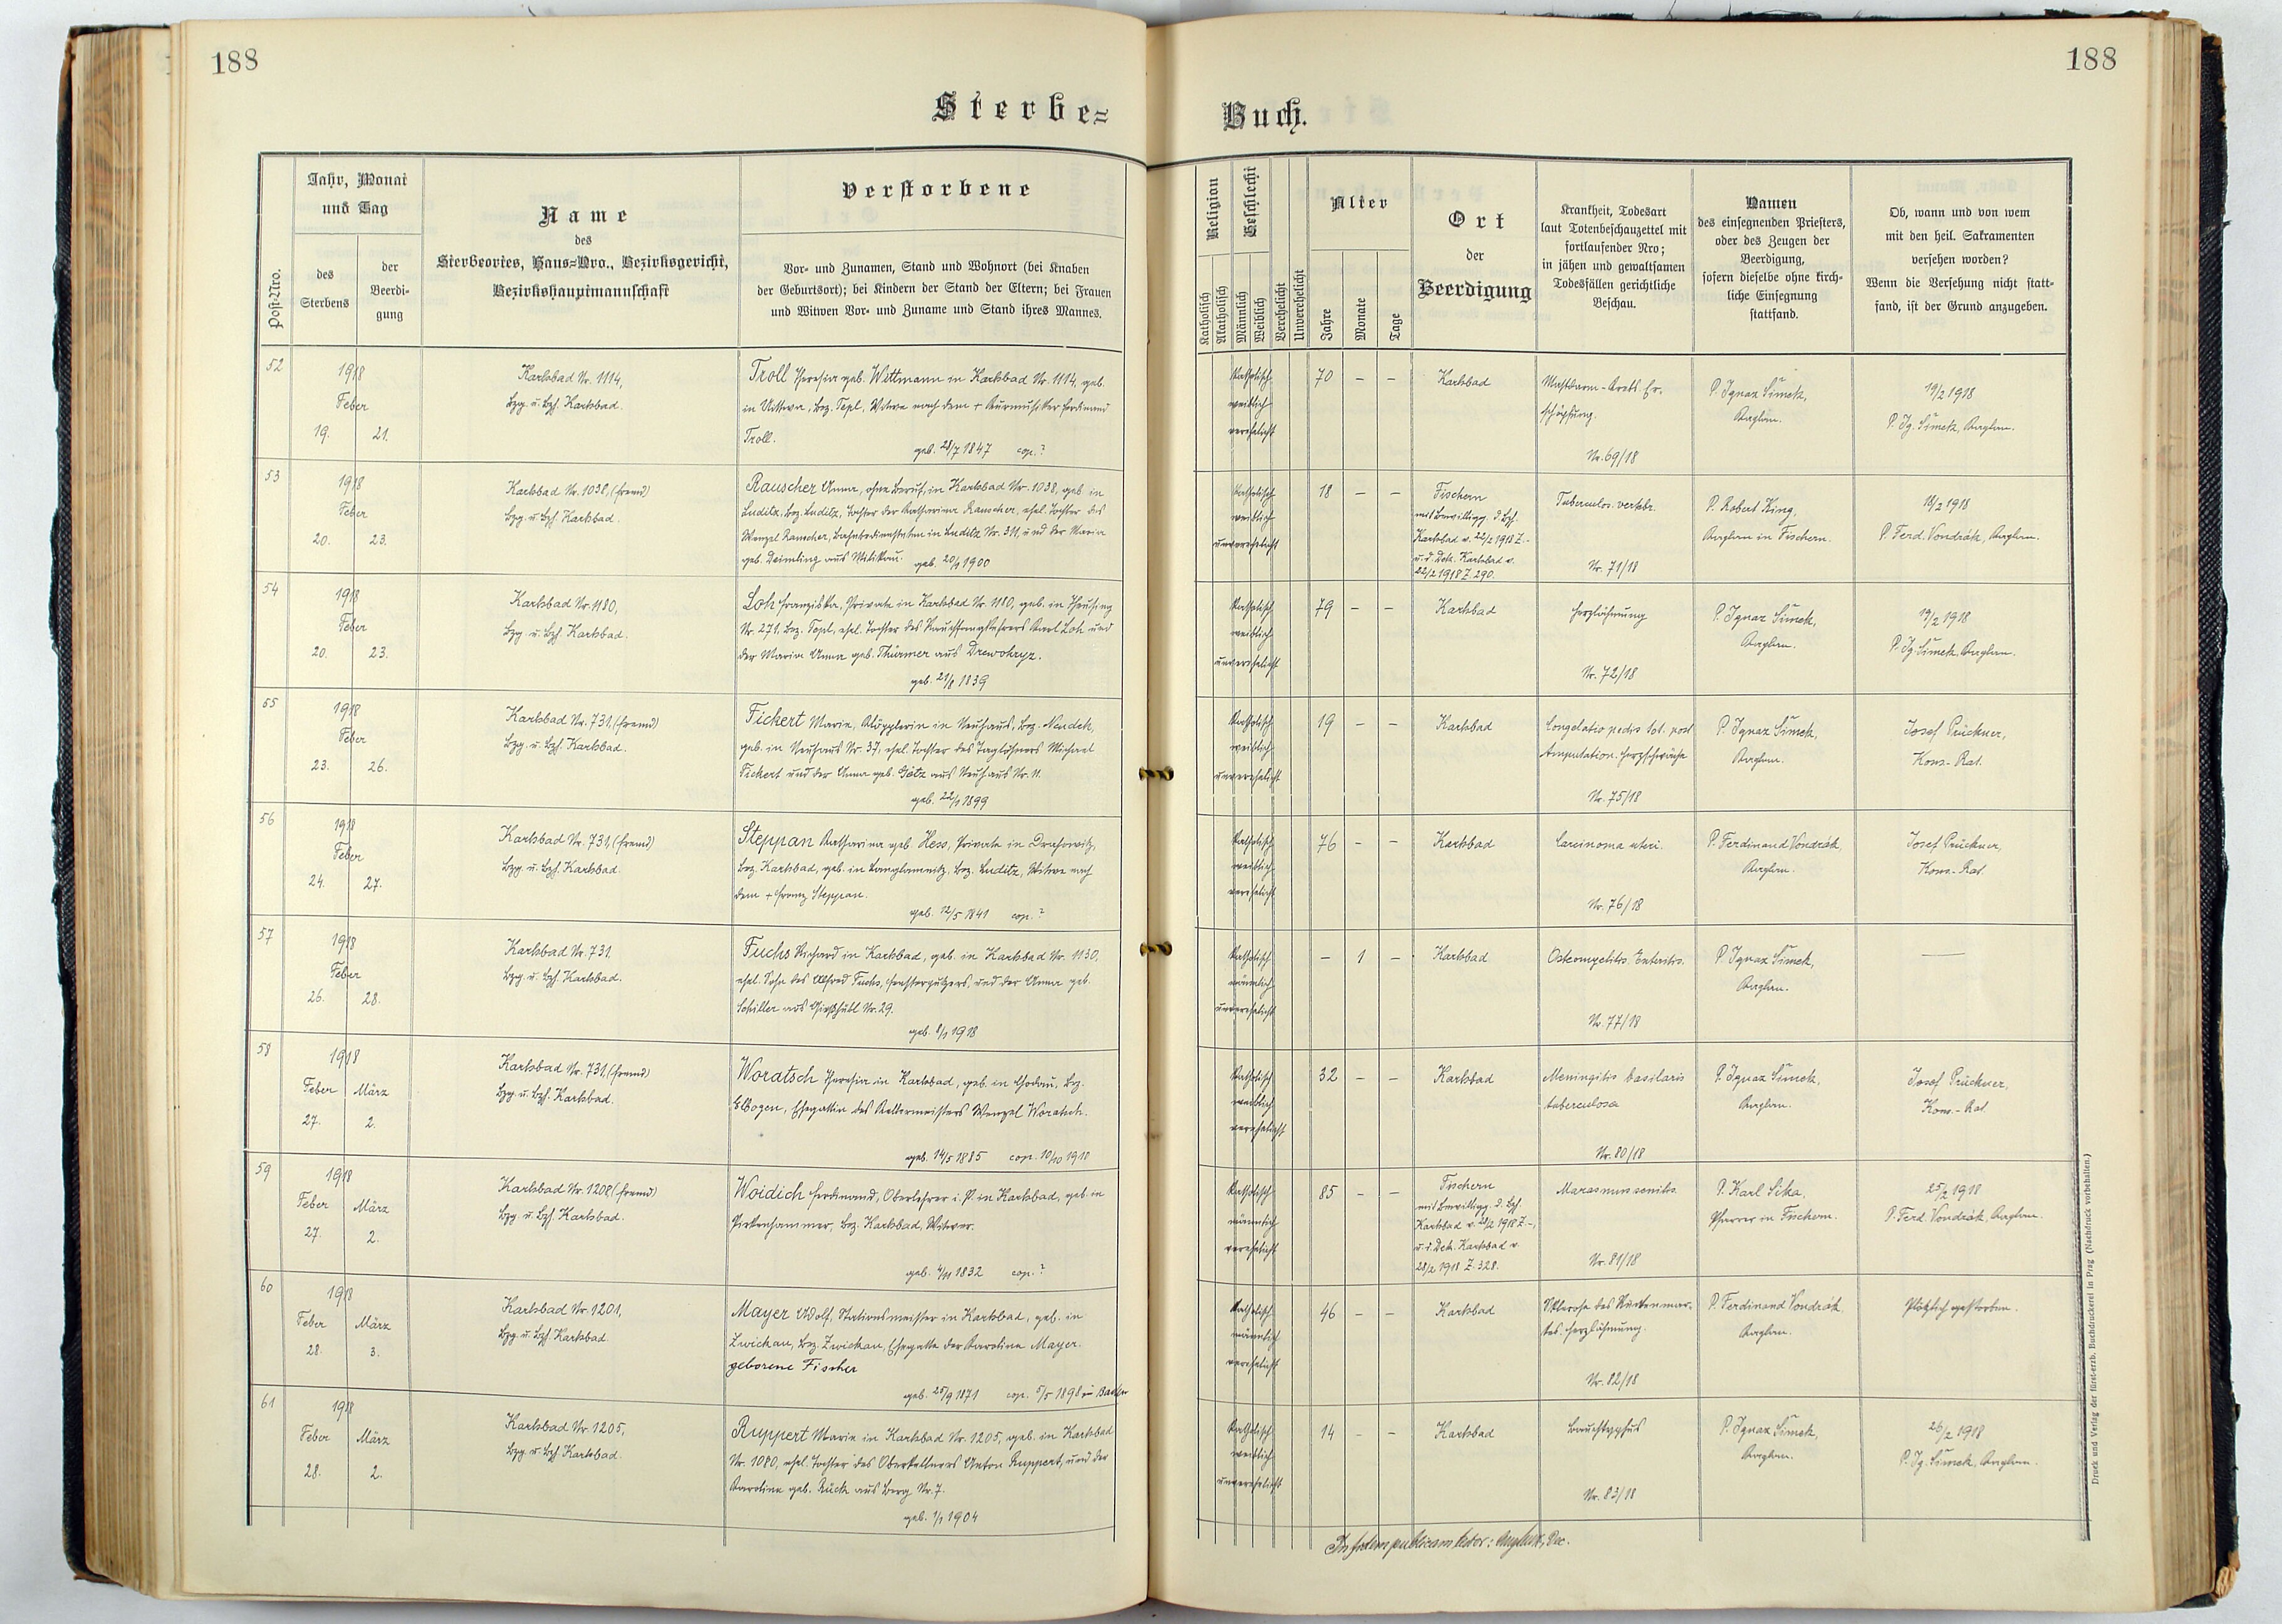 188
188
Sterbe-
Buch.
Post-Nro.
Jahr, Monat
und Tag
des
Sterbens
der
Beerdi-
gung
Name
des
Sterbeortes, Haus-Nro., Bezirksgericht,
Bezirkshauptmannschaft
Verstorbene
Vor- und Zunamen, Stand und Wohnort (bei Knaben
der Geburtsort); bei Kindern der Stand der Eltern; bei Frauen
und Witwen Vor- und Zuname und Stand ihres Mannes.
Religion
Katholisch
Akatholisch
Geschlecht
Männlich
Weiblich
Verehelicht
Unverehelicht
Alter
Jahre
Monate
Tage
Ort
der
Beerdigung
Krankheit, Todesart
laut Totenbeschauzettel mit
fortlaufender Nro;
in jähen und gewaltsamen
Todesfällen gerichtliche
Beschau.
Namen
des einsegnenden Priesters,
oder des Zeugen der
Beerdigung,
sofern dieselbe ohne kirch-
liche Einsegnung
stattfand.
Ob, wann und von wem
mit den heil. Sakramenten
versehen worden?
Wenn die Versehung nicht statt-
fand, ist der Grund anzugeben.
52
1918
Feber
19. 21.
Karlsbad Nr. 1114,
Bzg. u. Bzh. Karlsbad.
Troll Theresia geb. Wittmann in Karlsbad Nr. 1114, geb.
in Uittwa, Bez. Tepl, Witwe nach dem + Kurmusiker Ferdinand
Troll.
geb. 28/7 1847 cop. ?
katholisch
weiblich
verehelicht
70 - -
Karlsbad
Mastdarm-Krebs. Er-
schöpfung.
Nr. 69/18
P. Ignaz Šimek,
Kaplan.
19/2 1918
P. Ig. Šimek, Kaplan.
53
1918
Feber
20. 23.
Karlsbad Nr. 1038, (fremd)
Bzg. u. Bzh. Karlsbad.
Rauscher Anna, ohne Beruf, in Karlsbad Nr. 1038, geb. in
Luditz, Bez. Luditz, Tochter der Katharina Rauscher, ehel. Tochter des
Wenzel Rauscher, Bahnbediensteten in Luditz Nr. 311, und der Maria
geb. Deimling aus
geb. 20/1 1900
katholisch
weiblich
unverehelicht
18 - -
Fischern
mit Bewilligg. d. Bzh.
Karlsbad v. 22/2 1918 Z. -
u. d. Dek. Karlsbad v.
22/2 1918 Z. 290.
Tuberculos. vertebr.
Nr. 71/18
P. Robert King,
Kaplan in Fischern.
18/2 1918
P. Ferd. Vondrák, Kaplan.
54
1918
Feber
20. 23.
Karlsbad Nr. 1180,
Bzg. u. Bzh. Karlsbad.
Loh Franziska, Private in Karlsbad Nr. 1180, geb. in Theusing
Nr. 271, Bez. Tepl, ehel. Tochter des Rauchfangkehrers Karl Loh und
der Maria Anna geb. Thürmer aus Drewohryz.
geb. 21/8 1839
katholisch
weiblich
unverehelicht
79 - -
Karlsbad
Herzlähmung
Nr. 72/18
P. Ignaz Šimek,
Kaplan.
19/2 1918
P. Ig. Šimek, Kaplan.
55
1918
Feber
23. 26.
Karlsbad Nr. 731, (fremd)
Bzg. u. Bzh. Karlsbad.
Fickert Marie, Klöpplerin in Neuhaus, Bez. Neudek,
geb. in Neuhaus Nr. 37, ehel. Tochter des Taglöhners Michael
Fickert und der Anna geb. Götz aus Neuhaus Nr. 11.
geb. 22/1 1899
katholisch
weiblich
unverehelicht
19 - -
Karlsbad
Congelatio pedis tot. post
Amputation. Herzschwäche
Nr. 75/18
P. Ignaz Šimek,
Kaplan.
Josef Prückner,
Kons.-Rat.
56
1918
Feber
24. 27.
Karlsbad Nr. 731, (fremd)
Bzg. u. Bzh. Karlsbad.
Steppan Katharina geb. Hess, Private in Drahowitz,
Bez. Karlsbad, geb. in Langlamnitz, Bez. Luditz, Witwe nach
dem + Franz Steppan.
geb. 12/5 1841 cop. ?
katholisch
weiblich
verehelicht
76 - -
Karlsbad
Carcinoma uteri.
Nr. 76/18
P. Ferdinand Vondrák,
Kaplan.
Josef Prückner,
Kons.-Rat.
57
1918
Feber
26. 28.
Karlsbad Nr. 731.
Bzg. u. Bzh. Karlsbad.
Fuchs Richard in Karlsbad, geb. in Karlsbad Nr. 1130,
ehel. Sohn des Alfred Fuchs, Fensterputzers, und der Anna geb.
Schiller aus Gießhübl Nr. 29.
geb. 8/1 1918
katholisch
männlich
unverehelicht
- 1 -
Karlsbad
Osteomyelitis. Enteritis.
Nr. 77/18
P. Ignaz Šimek,
Kaplan.
—
58
1918
Feber März
27. 2.
Karlsbad Nr. 731, (fremd)
Bzg. u. Bzh. Karlsbad.
Woratsch Theresia in Karlsbad, geb. in Chodau, Bez.
Elbogen, Ehegattin des Kellermeisters Wenzel Woratsch.
geb. 14/5 1885 cop. 10/10 1910
katholisch
weiblich
verehelicht
32 - -
Karlsbad
Meningitis basilaris
tuberculosa
Nr. 80/18
P. Ignaz Šimek,
Kaplan.
Josef Prückner,
Kons.-Rat.
59
1918
Feber März
27. 2.
Karlsbad Nr. 1208, (fremd)
Bzg. u. Bzh. Karlsbad.
Woidich Ferdinand, Oberlehrer i. P. in Karlsbad, geb. in
Pirkenhammer, Bez. Karlsbad, Witwer.
geb. 4/11 1832 cop. ?
katholisch
männlich
verehelicht
85 - -
Fischern
mit Bewilligg. d. Bzh.
Karlsbad v. 28/2 1918 Z. -,
u. d. Dek. Karlsbad v.
28/2 1918 Z. 328.
Marasmus senilis.
Nr. 81/18
P. Karl Sika,
Pfarrer in Fischern.
25/2 1918
P. Ferd. Vondrák, Kaplan.
60
1918
Feber März
28. 3.
Karlsbad Nr. 1201,
Bzg. u. Bzh. Karlsbad.
Mayer Adolf, Stationsmeister in Karlsbad, geb. in
Zwickau, Bez. Zwickau, Ehegatte der Karoline Mayer.
geborene Fischer
geb. 25/9 1871 cop. 5/5 1898 in
katholisch
männlich
verehelicht
46 - -
Karlsbad
Sklerose des Rückenmar-
kes. Herzlähmung.
Nr. 82/18
P. Ferdinand Vondrák,
Kaplan.
Plötzlich gestorben.
61
1918
Feber März
28. 2.
Karlsbad Nr. 1205,
Bzg. u. Bzh. Karlsbad.
Ruppert Marie in Karlsbad Nr. 1205, geb. in Karlsbad
Nr. 1080, ehel. Tochter des Oberkellners Anton Ruppert, und der
Karoline geb. Rück aus Berg Nr. 7.
geb. 1/1 1904
katholisch
weiblich
unverehelicht
14 - -
Karlsbad
Bauchtyphus
Nr. 83/18
P. Ignaz Šimek,
Kaplan.
26/2 1918
P. Ig. Šimek, Kaplan.
In fidem publicam testor:
Druck und Verlag der fürst-erzb. Buchdruckerei in Prag (Nachdruck vorbehalten.)